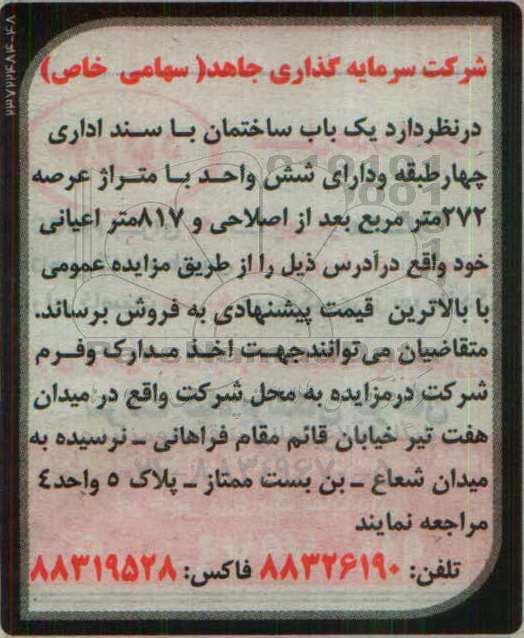 شرکت سرمایه گذاری جاهد( سهامی خاص)
درنظردارد یک باب ساختمان بـا سـند اداری
چهارطبقه ودارای شش واحـد بـا متـراژ عرصه
۲۷۲متر مربع بعد از اصلاحی و ۸۱۷متر اعیانی
خود واقع درآدرس ذیل را از طریق مزایده عمومی
با بالاترین قیمت پیشنهادی به فروش برساند.
متقاضیان می‌توانندجهـت اخـذ مـدارک وفـرم
شرکت درمزایده به محل شرکت واقع در میدان
هفت تیر خیابان قائم مقام فراهانی ـ نرسیده به
میدان شعاع ـ بن بست ممتاز ـ پلاک ٥ واحد٤
مراجعه نمایند
تلفن: ۸۸۳۲۶۱۹۰ فاکس: ۸۸۳۱۹۵۲۸